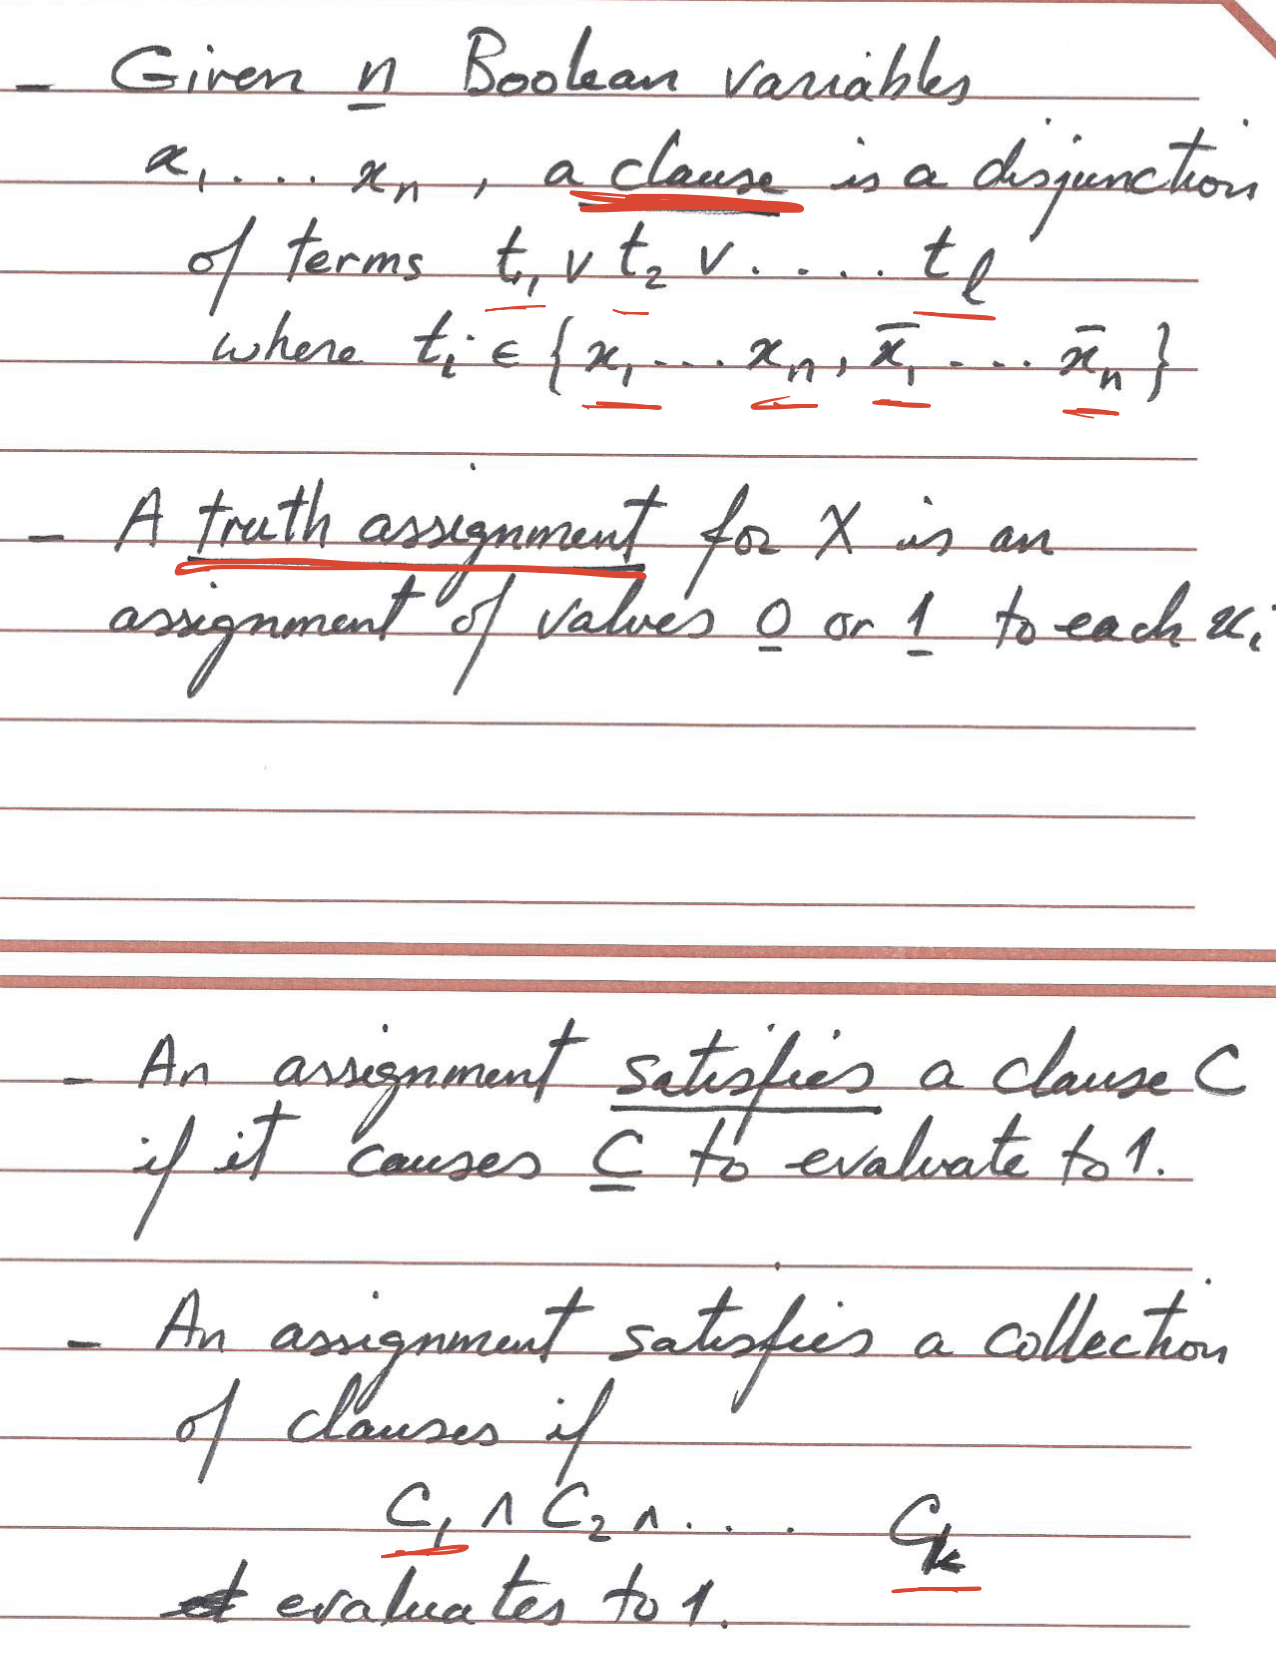 - Given n Boolean variables
x₁ .... xₙ , a clause is a disjunction
of terms t₁ ∨ t₂ ∨ ..... tₗ
where tᵢ ∈ { x₁ ... xₙ , x̄₁ .... x̄ₙ }
- A truth assignment for X is an
assignment of values 0 or 1 to each xᵢ
- An assignment satisfies a clause C
if it causes C to evaluate to 1.
- An assignment satisfies a collection
of clauses if
C₁ ∧ C₂ ∧ .... Cₖ
evaluates to 1.